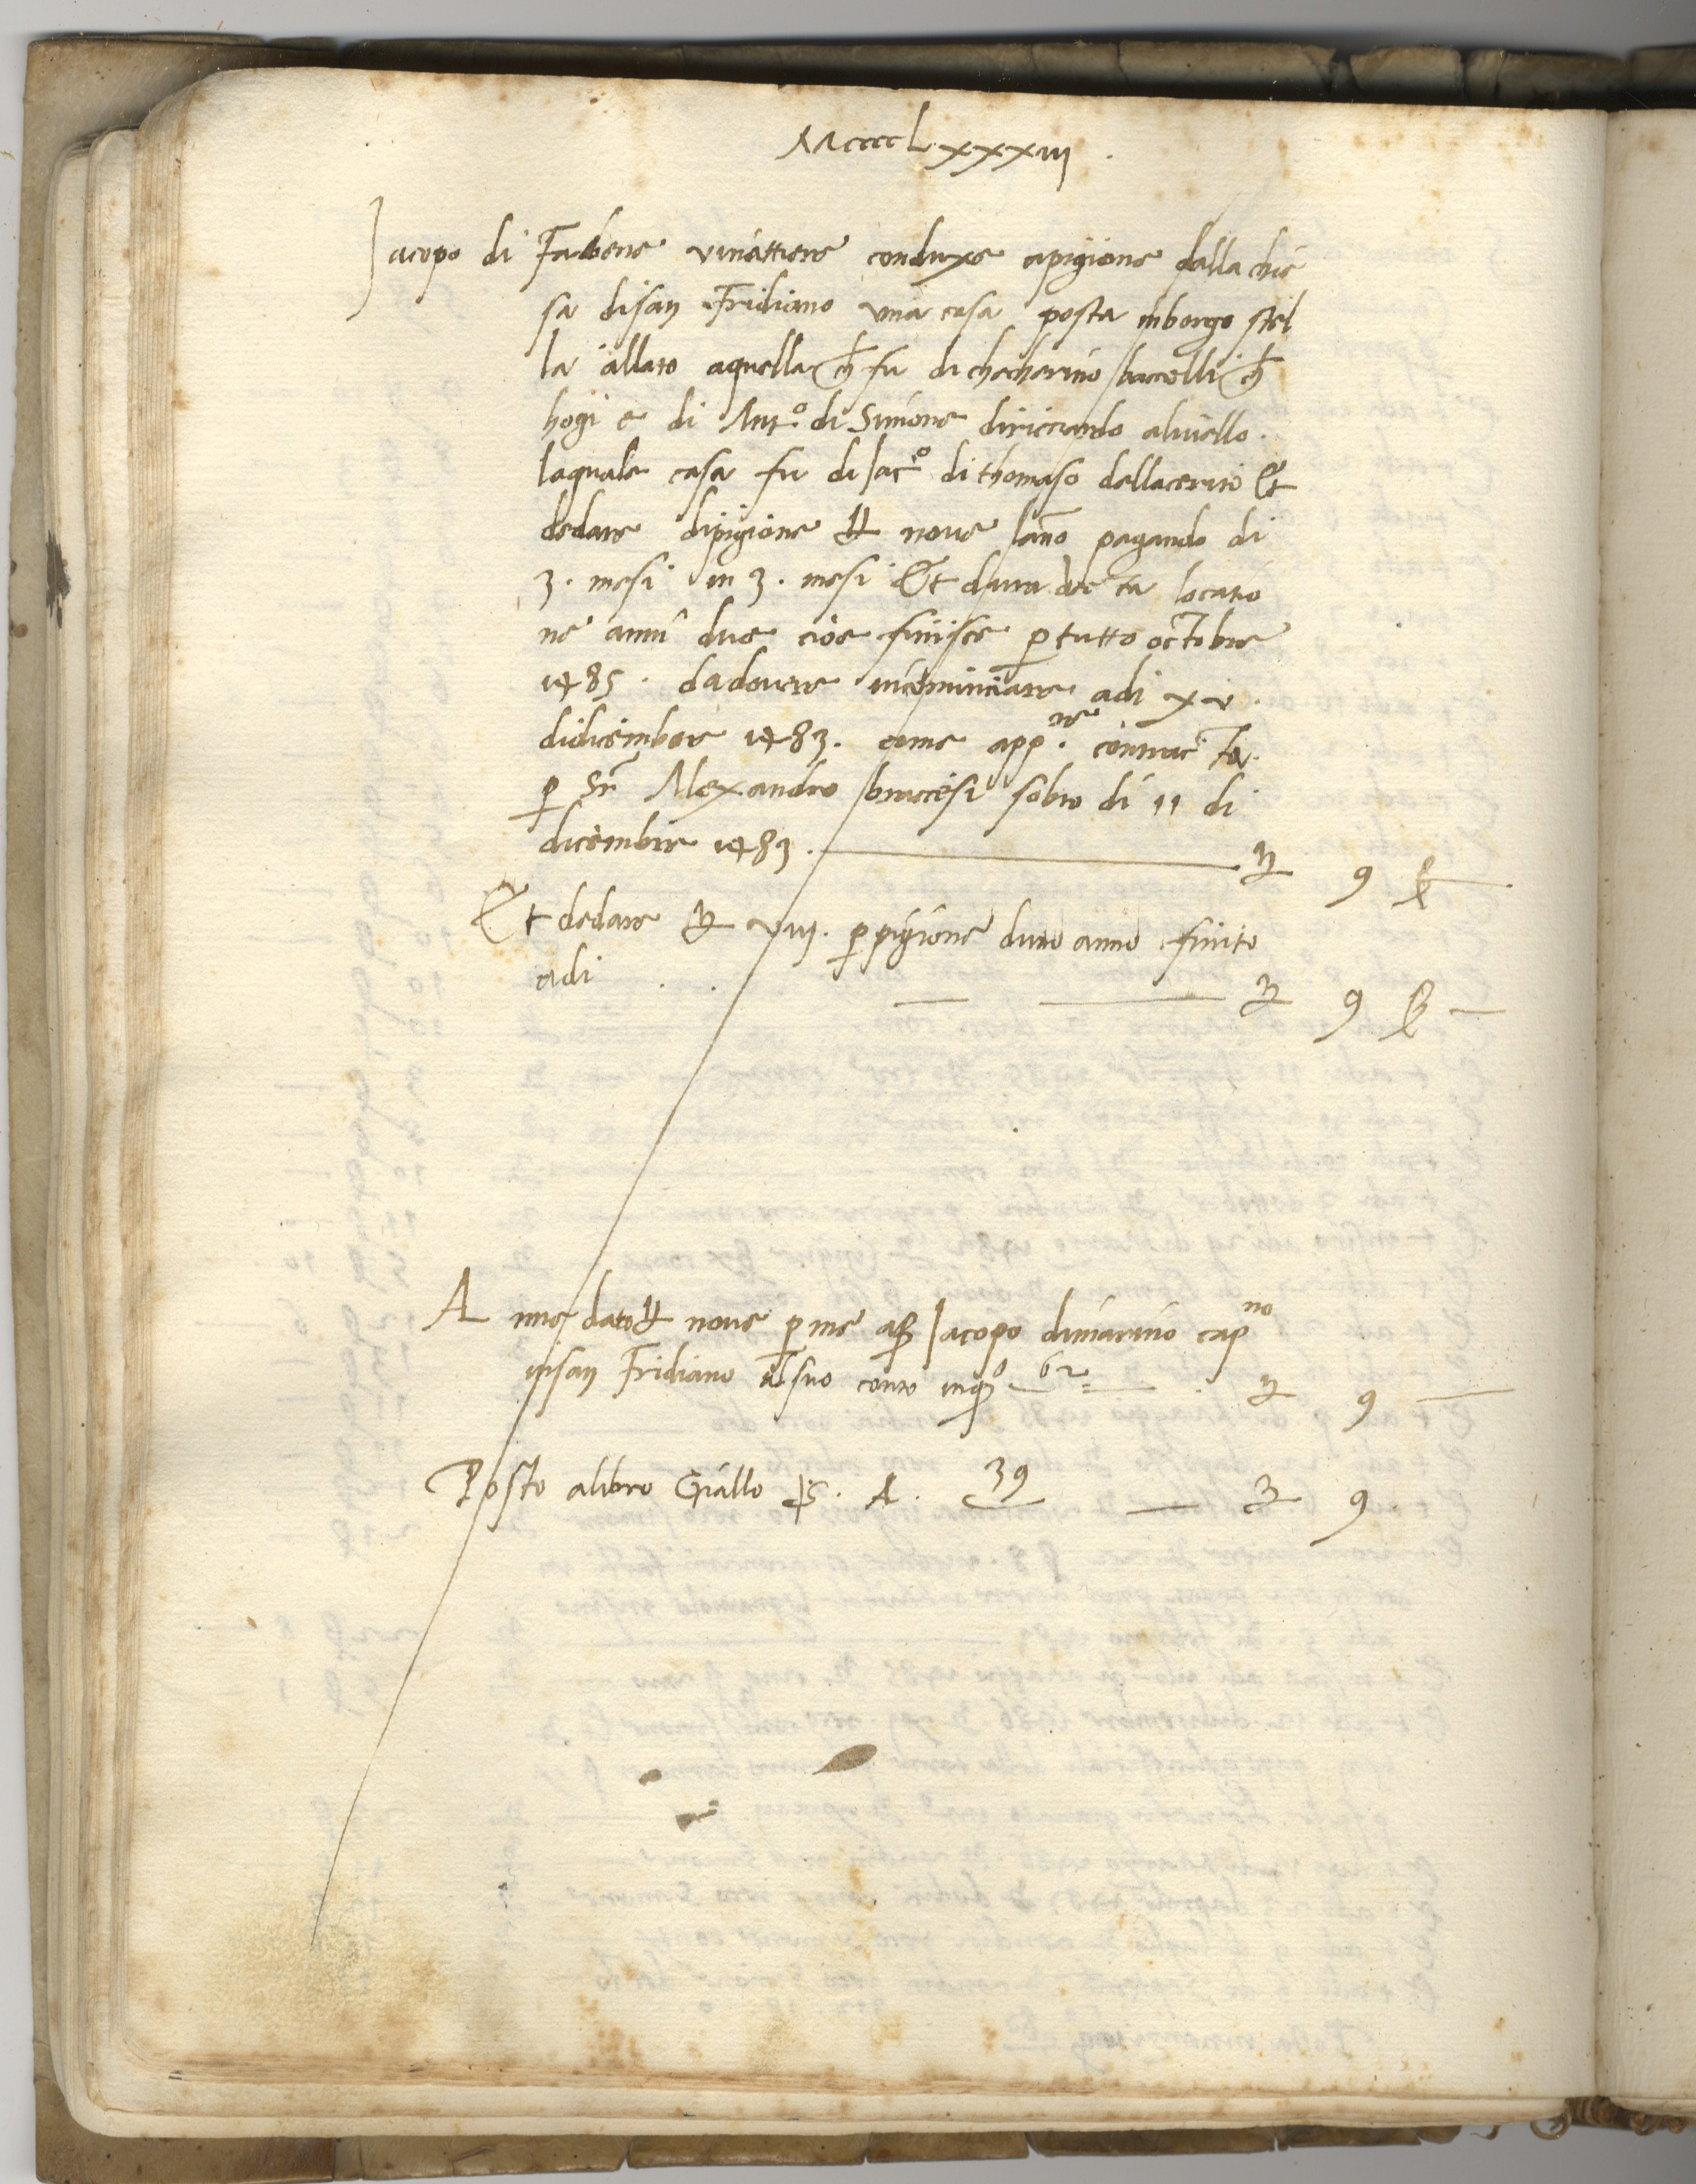 MccccLxxxiii .
Jacopo di Fabene vinattiere conduxe apigione dallachie
sa disan Fridiano una casa posta inborgo stel
la allato aquella ch̄ fu di chacherino baccelli ch̄
hogi e di Antº. di Simone diricciardo alivello .
laquale casa fu di Jacº dithomaso dellacerito Et
dedare dipigione nove lan̄o pagando di
3 . mesi in 3 . mesi Et dura dec ta locatio
ne anni due cioe finisce ꝑ tutto octobre
1485 . dadovere incominciare adi xv .
didicembre 1483 . come app.re contrac to .
ꝑ Sr̄ Alexandro braccesi sobto dì 11 di
dicembre 1483 . 9
Et dedare viiij . ꝑ pigione duno anno finito
adi . . 9
A nne dato nove ꝑ me Jacopo dimarino capno
insan Fridiano al suo conto inqº 62 9
Posto alibro Giallo . A . 39 9